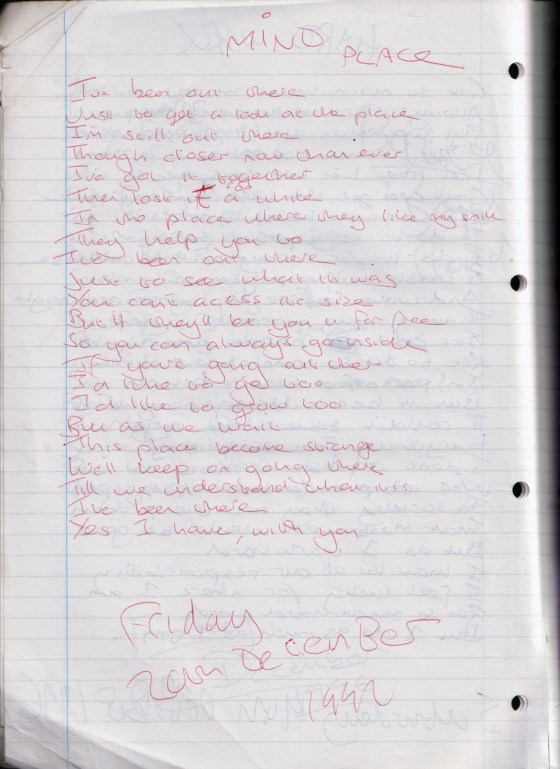 MIND PLACE
I've been out there
Just to get a look at the place
I'm still out there
Though closer now than ever
I've got it together
Then lost it for a while
In the place where they like my smile
They help you to
I've been out there
Just to see what it was
You can't access its size
But they'll let you in for free
So you can always go inside
If you're going out there
I'd like to get too
I'd like to grow too
But as we wait
This place become strange
We'll keep on going there
Till we understand
I've been there
Yes I have, with you
Friday
20th December
1992